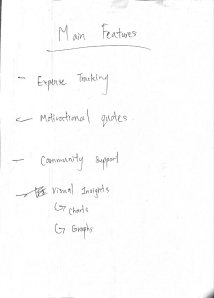 Main Features
- Expense Tracking
- Motivational quotes.
- Community Support
- Visual Insights
↳ Charts
↳ Graphs